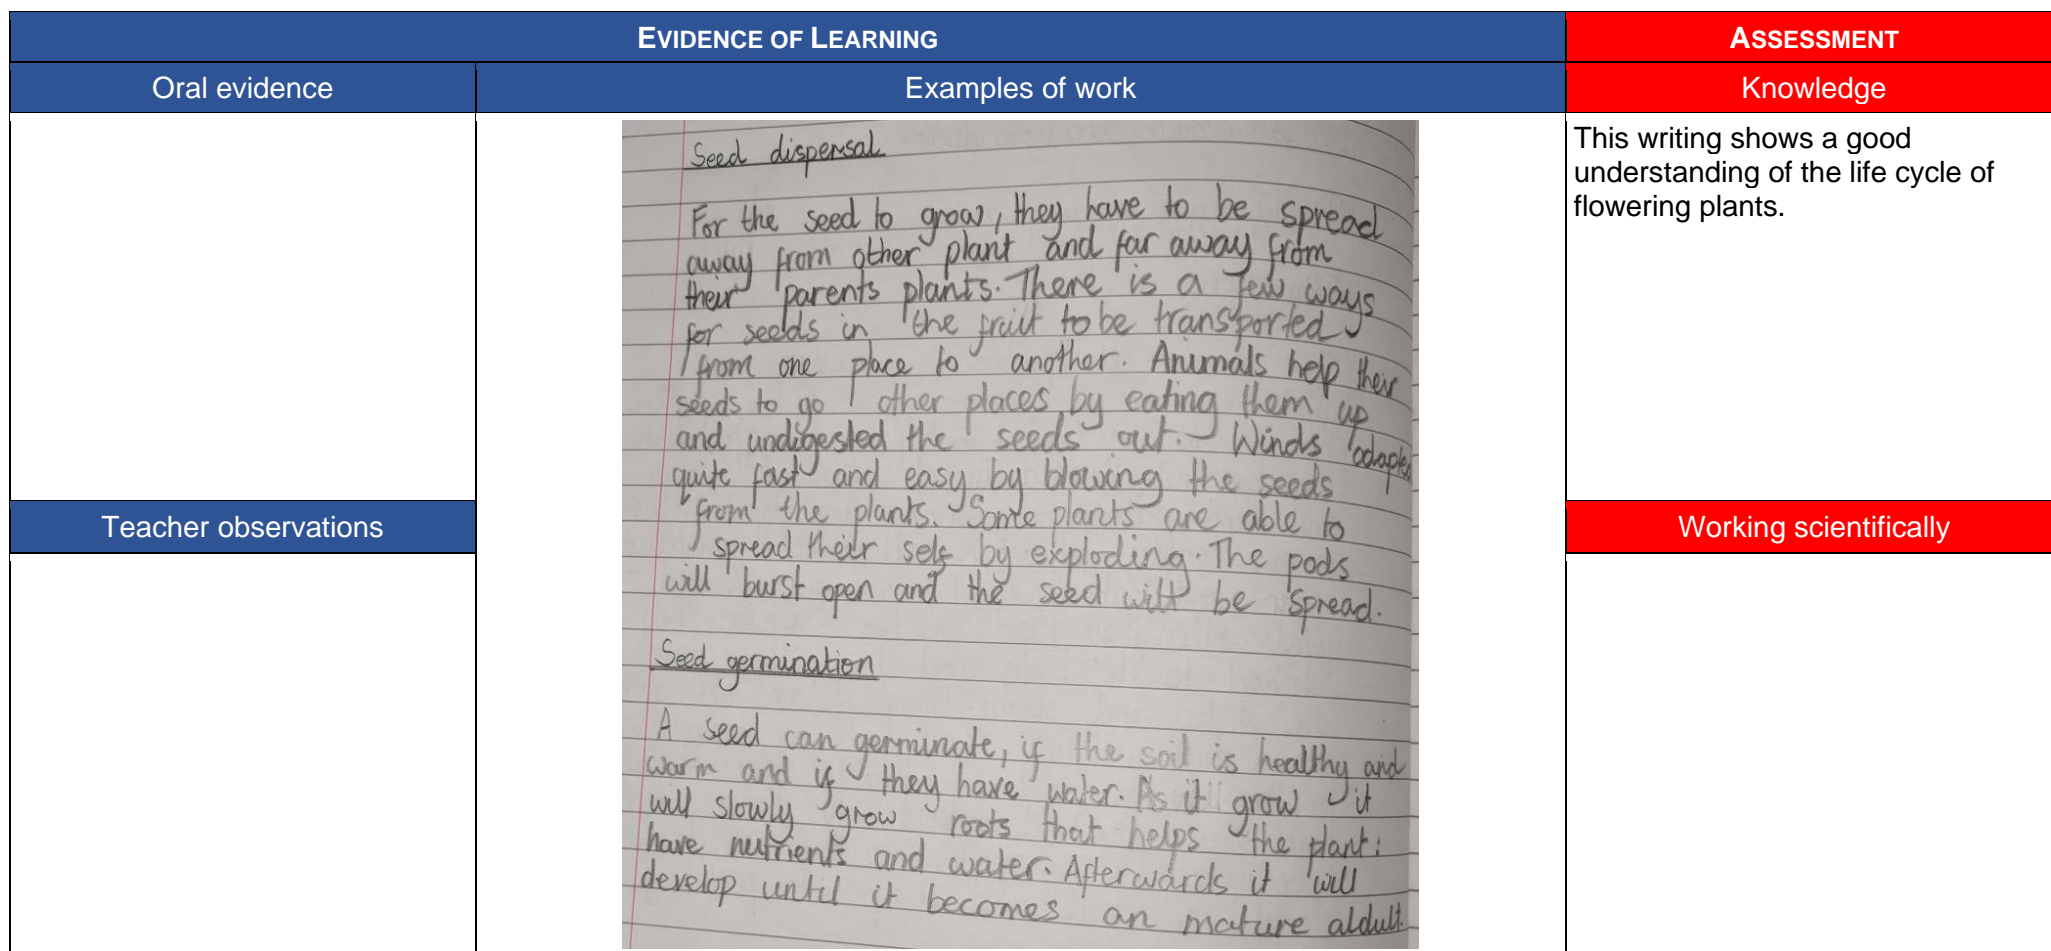 EVIDENCE OF LEARNING
ASSESSMENT
Oral evidence
Examples of work
Knowledge
Seed dispersal
For the seed to grow, they have to be spread
away from other plant and far away from
their parents plants. There is a few ways
for seeds in the fruit to be transported
from one place to another. Animals help their
seeds to go other places by eating them up
and undigested the seeds out. Winds adapted
quite fast and easy by blowing the seeds
from the plants. Some plants are able to
spread their self by exploding. The pods
will burst open and the seed will be spread.
Seed germination
A seed can germinate, if the soil is healthy and
warm and if they have water. As it grow it
will slowly grow roots that helps the plant:
have nutrients and water. Afterwards it will
develop until it becomes an mature aldult.
This writing shows a good
understanding of the life cycle of
flowering plants.
Teacher observations
Working scientifically